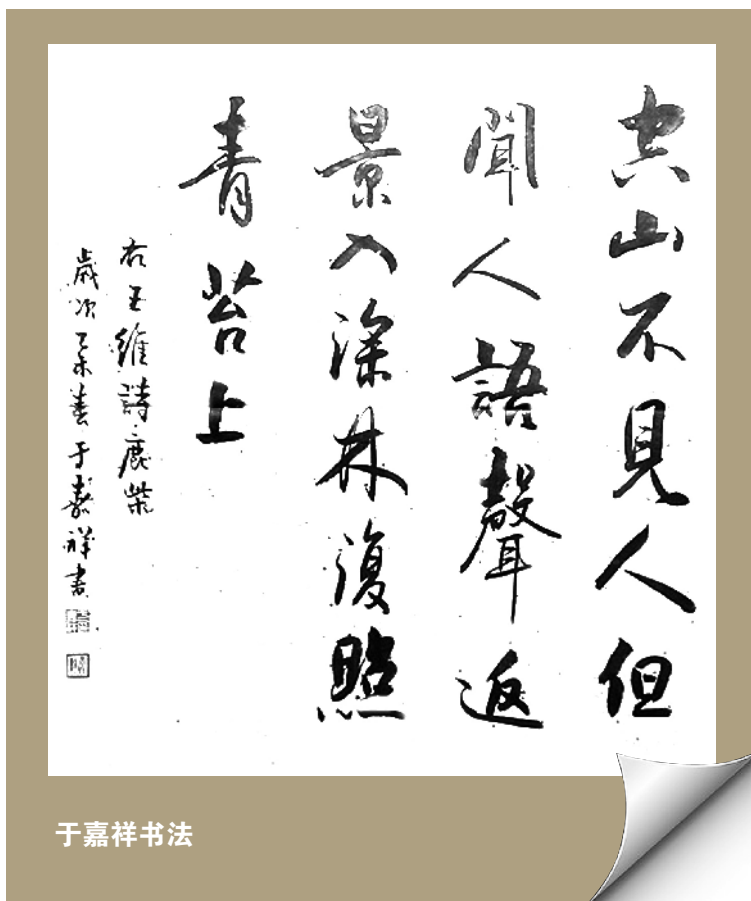 空山不見人但
聞人語聲返
景入深林復照
青苔上
右王維詩鹿柴
歲次乙未春于嘉祥書
于嘉祥书法